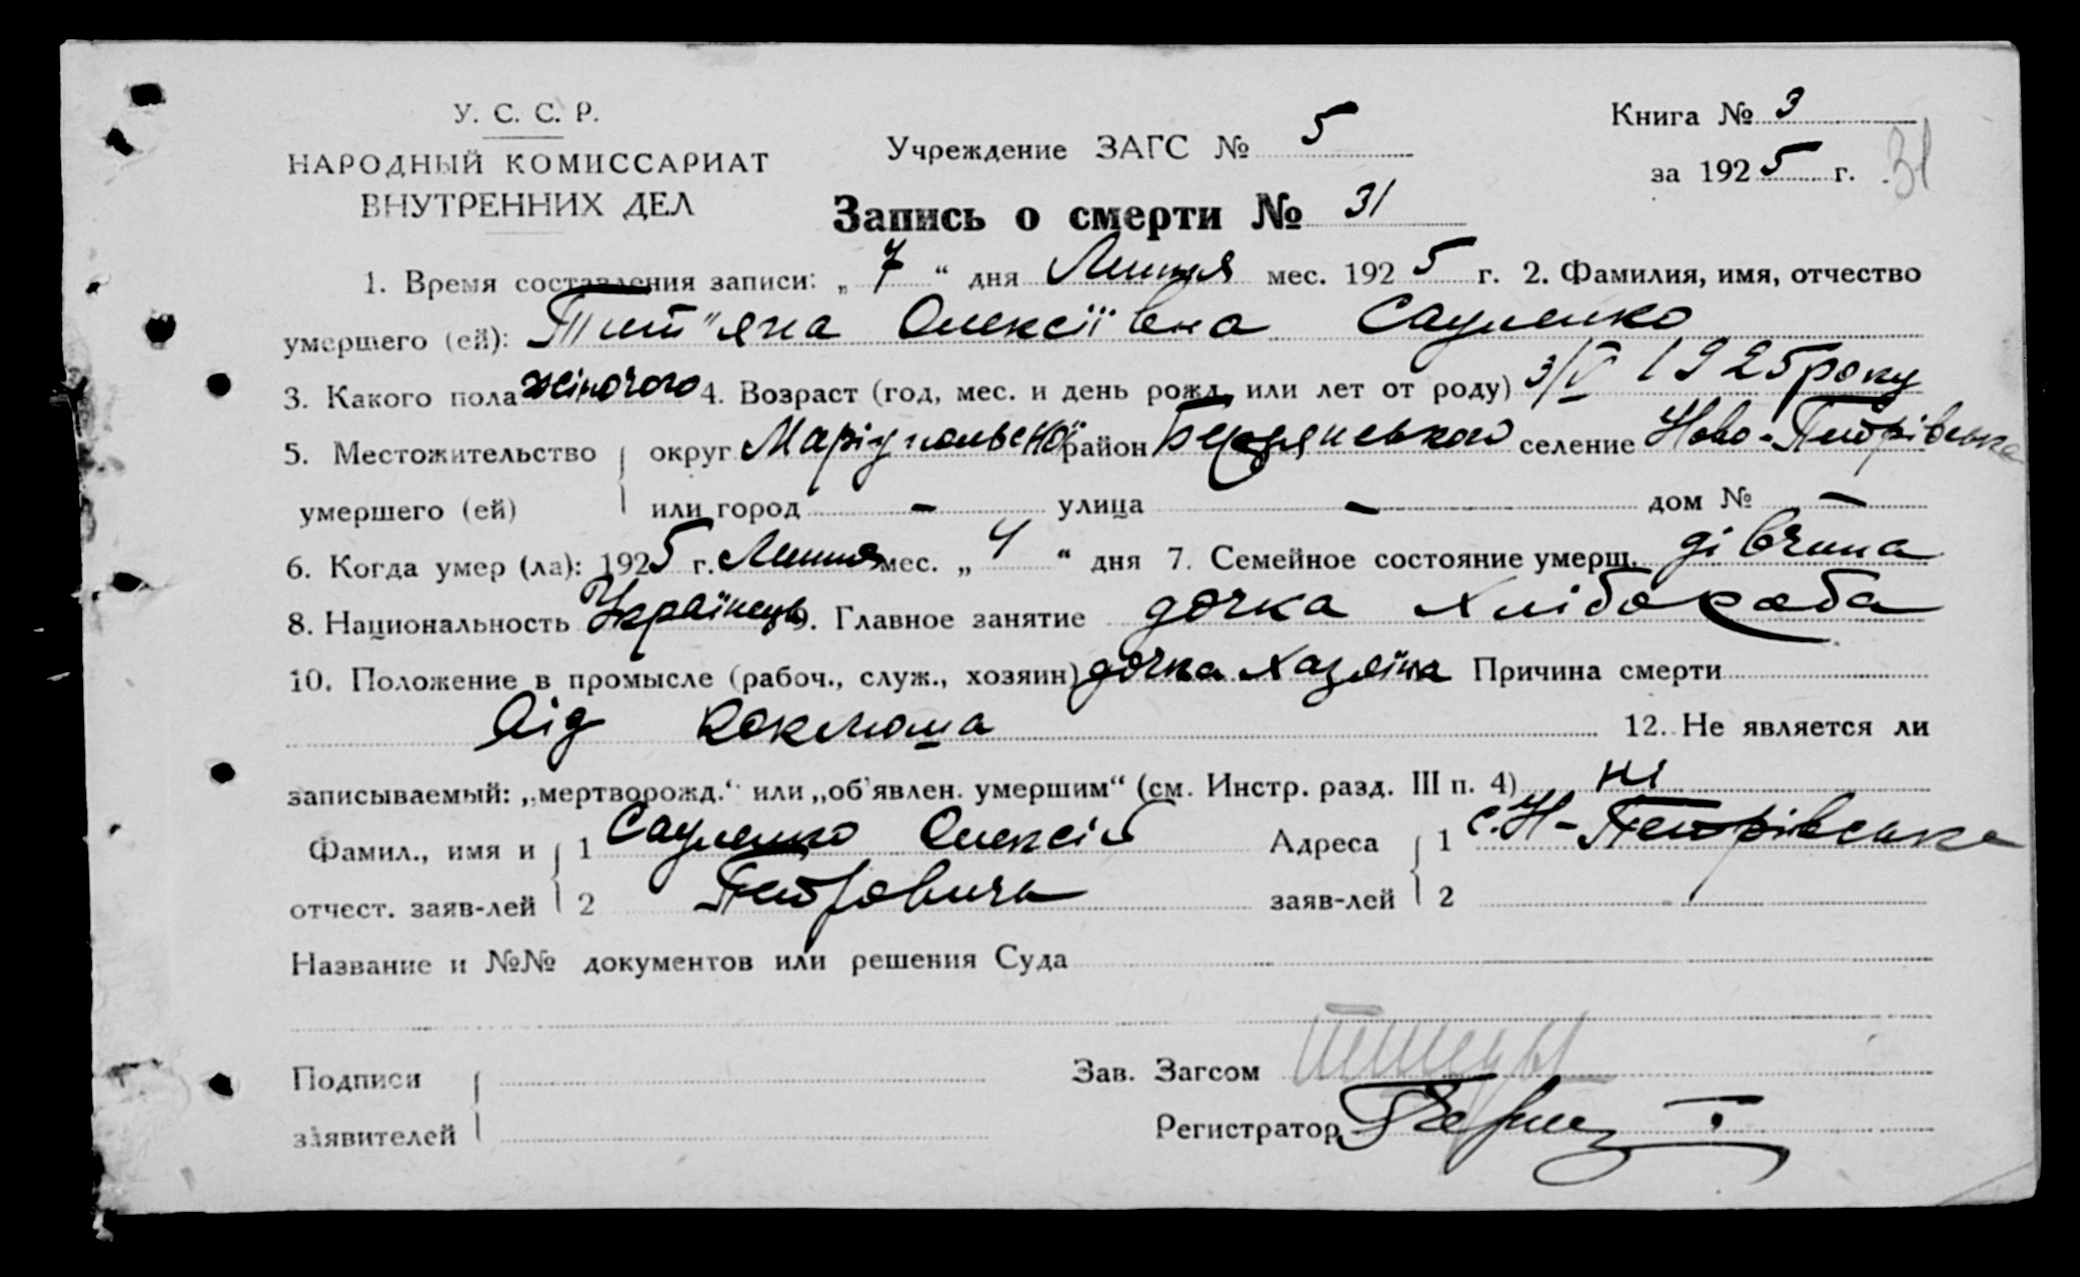 У. С. С. Р.
НАРОДНЫЙ КОМИССАРИАТ
ВНУТРЕННИХ ДЕЛ
Учреждение ЗАГС № 5
Книга № 3
за 1925 г. 31
Запись о смерти № 31
1. Время составления записи: „ 7 “ дня Липня мес. 1925 г. 2. Фамилия, имя, отчество
умершего (ей): Тит"яна Олексіївна Сауленко
3. Какого пола жіночого 4. Возраст (год, мес. и день рожд. или лет от роду) 3/V 1925 року
5. Местожительство округ Маріупольської район Бердянського селение Ново-Петрівська
умершего (ей) или город - улица - дом № -
6. Когда умер (ла): 1925 г. Липня мес. „ 4 “ дня 7. Семейное состояние умерш. дівчина
8. Национальность Українець 9. Главное занятие дочка хлібороба
10. Положение в промысле (рабоч., служ., хозяин) дочка хазяїна Причина смерти
Від коклюша 12. Не является ли
записываемый: „мертворожд.“ или „об'явлен. умершим“ (см. Инстр. разд. III п. 4) ні
Фамил., имя и 1 Сауленко Олексій Адреса 1 с. Н-Петрівська
отчест. заяв-лей 2 Петрович заяв-лей 2
Название и №№ документов или решения Суда
Подписи Зав. Загсом
заявителей Регистратор